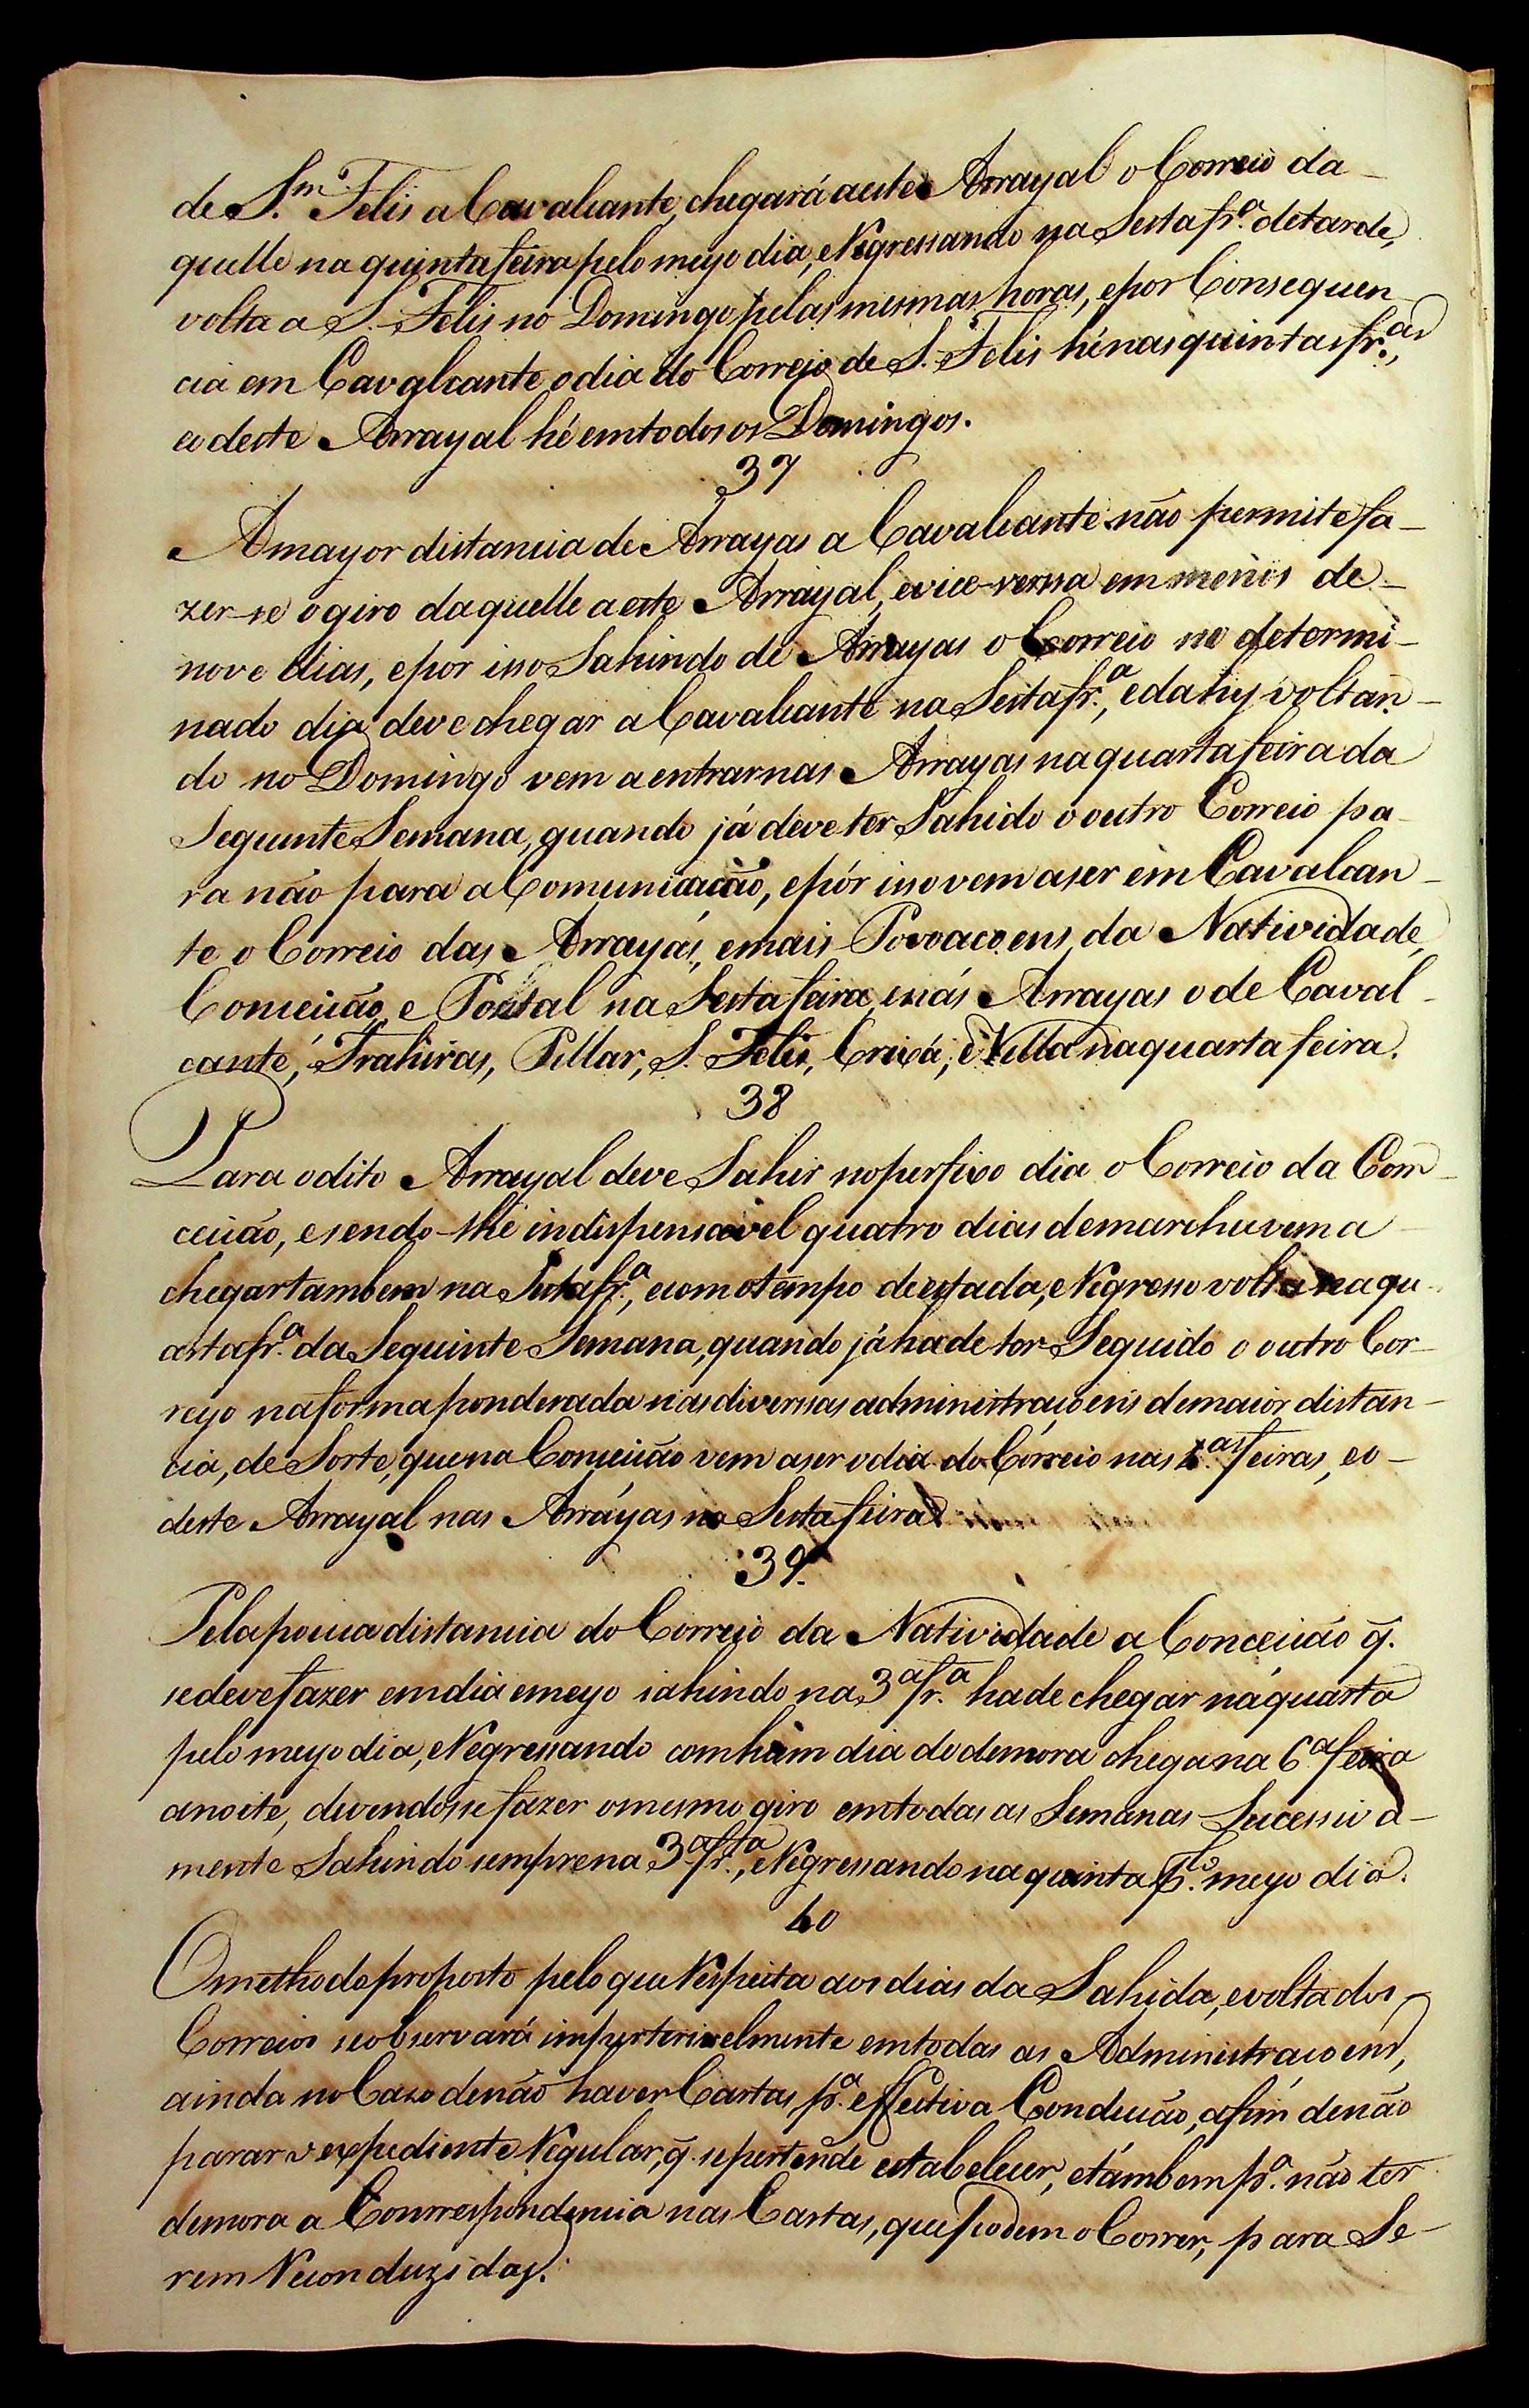 de S.m Felis a Cavalcante, chegará a este Arrayal o Correio da-
quelle na quinta feira pelo meyo dia, e Regressando na Sesta fr.a de tarde,
volta a S. Felis no Domingo pelas mesmas horas, e por Consequen-
cia em Cavalcante o dia do Correio de S. Felis hé nas quintas fr.as,
e o deste Arrayal hé em todos os Domingos.
37
A mayor distancia de Arrayas a Cavalcante não permite fa-
zer-se o giro daquelle a este Arrayal, e vice-versa em menos de-
nove dias, e por isso Sahindo de Arrayas o Correio no determi-
nado dia deve chegar a Cavalcante na Sesta fr.a, e dahy voltan-
do no Domingo vem a entrar nas Arrayas na quarta feira da
Seguinte Semana, quando já deve ter Sahido o outro Correio pa-
ra não parar a Comunicação, e pór isso vem a ser em Cavalcan-
te o Correio das Arrayás, e mais Povoaçoens, da Natividade,
Conceição, e Pontal na Sesta feira, e nas Arrayas o de Caval-
cante, Trahiras, Pillar, S. Felis, Crixá, e Villa na quarta feira.
38
Para o dito Arrayal deve Sahir no perfixo dia o Correio da Con-
ceição, e sendo-lhe indispensavel quatro dias de marcha vem a
chegar tambem na Sesta fr.a, e com o tempo de estada, e Regresso volta na qu-
arta fr.a da Seguinte Semana, quando já hade ter Seguido o outro Cor-
reyo na forma ponderada nas diversas administraçoens de maior distan-
cia, de Sorte, que na Conceição vem a ser o dia do Correio nas 4.as feiras, e o-
deste Arrayal nas Arráyas na Sesta feira.
39.
Pela pouca distancia do Correio da Natividade a Conceição q̃.
se deve fazer em dia e meyo sahindo na 3a fr.a hade chegar na quarta
pelo meyo dia, e Regressando com hum dia de demora chega na 6.a feira
a noite, devendosse fazer o mesmo giro em todas as Semanas Sucessiva-
mente Sahindo sempre na 3a fr.a, e Regressando na quinta p.lo meyo dia.
40
O methodo proposto pelo que Respeita aos dias da Sahida, e volta dos
Correios se observará impreterivelmente em todas as Administraçoens,
ainda no Cazo de não haver Cartas p.a effectiva Condução, afim de não
parar o expediente Regular, q̃. se pertende estabelecer, e támbem p.a não ter
demora a Conrrespondencia nas Cartas, que podem oCorrer, para Se-
rem Reconduzidas.